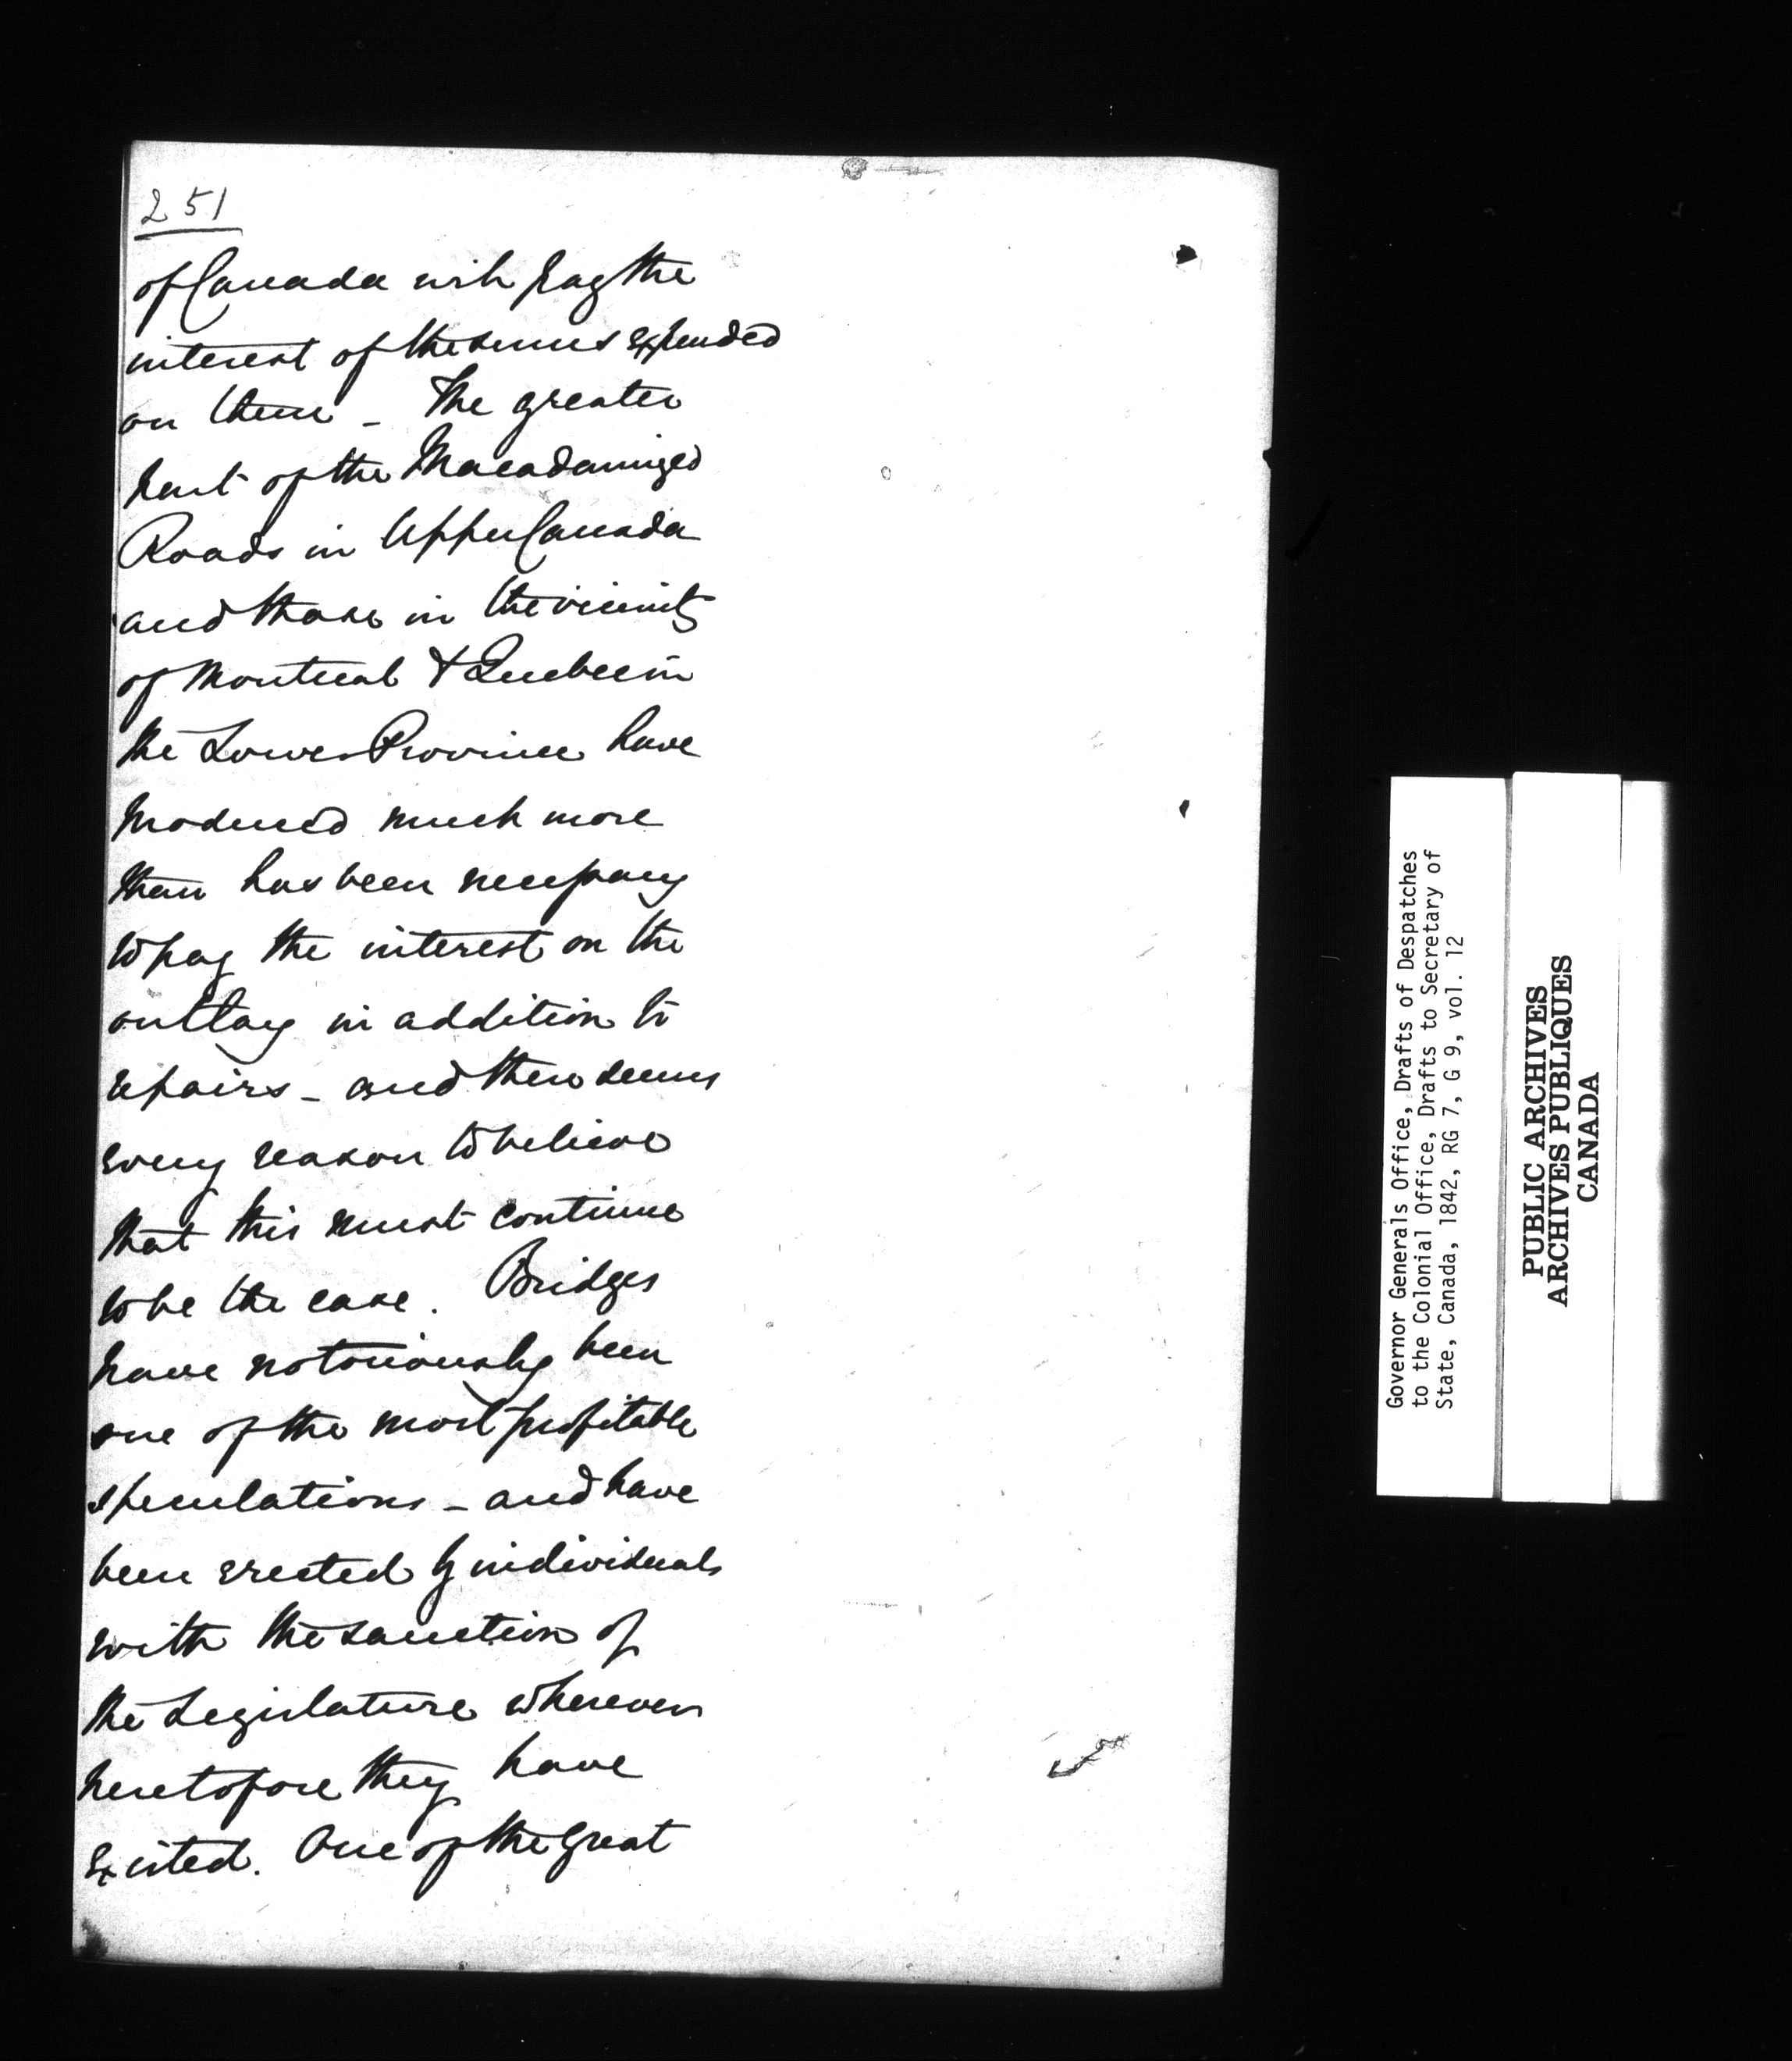 251
of Canada will pay the
interest of the sums expended
on them - The greater
part of the Macadamized
Roads in Upper Canada
and those in the vicinity
of Montreal & Quebec in
the Lower Province have
produced much more
than has been necessary
to pay the interest on the
outlay in addition to
repairs - and there seems
every reason to believe
that this must continue
to be the case. Bridges
have notoriously been
one of the most profitable
speculations - and have
been erected by individuals
with the sanction of
the Legislature wherever
heretofore they have
existed. One of the great
Governor Generals Office, Drafts of Despatches
to the Colonial Office, Drafts to Secretary of
State, Canada, 1842, RG 7, G 9, vol. 12
PUBLIC ARCHIVES
ARCHIVES PUBLIQUES
CANADA